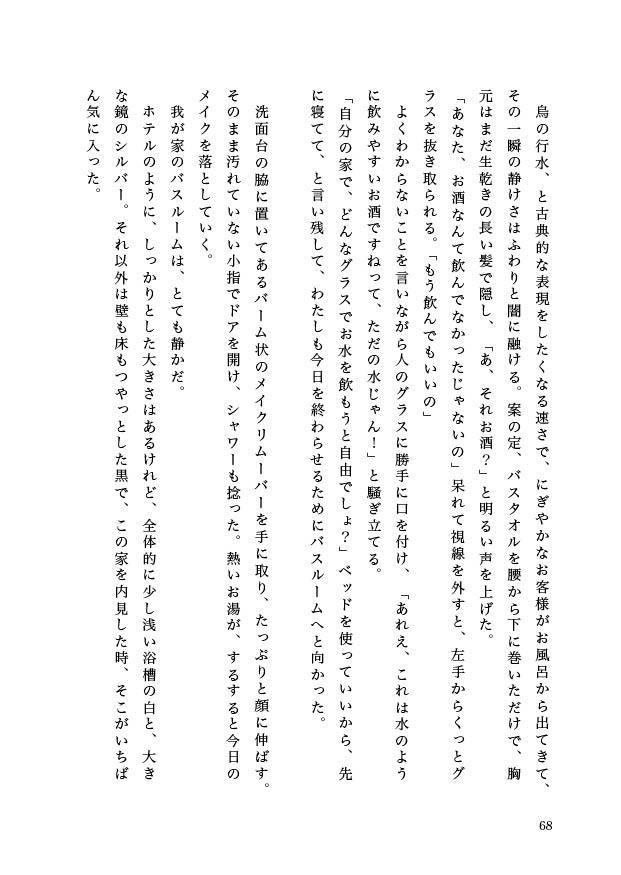 烏の行水、と古典的な表現をしたくなる速さで、にぎやかなお客様がお風呂から出てきて、
その一瞬の静けさはふわりと闇に融ける。案の定、バスタオルを腰から下に巻いただけで、胸
元はまだ生乾きの長い髪で隠し、「あ、それお酒？」と明るい声を上げた。
「あなた、お酒なんて飲んでなかったじゃないの」呆れて視線を外すと、左手からくっとグ
ラスを抜き取られる。「もう飲んでもいいの」
　よくわからないことを言いながら人のグラスに勝手に口を付け、「あれえ、これは水のよう
に飲みやすいお酒ですねって、ただの水じゃん！」と騒ぎ立てる。
「自分の家で、どんなグラスでお水を飲もうと自由でしょ？」ベッドを使っていいから、先
に寝てて、と言い残して、わたしも今日を終わらせるためにバスルームへと向かった。
　洗面台の脇に置いてあるバーム状のメイクリムーバーを手に取り、たっぷりと顔に伸ばす。
そのまま汚れていない小指でドアを開け、シャワーも捻った。熱いお湯が、するすると今日の
メイクを落としていく。
　我が家のバスルームは、とても静かだ。
　ホテルのように、しっかりとした大きさはあるけれど、全体的に少し浅い浴槽の白と、大き
な鏡のシルバー。それ以外は壁も床もつやっとした黒で、この家を内見した時、そこがいちば
ん気に入った。
68